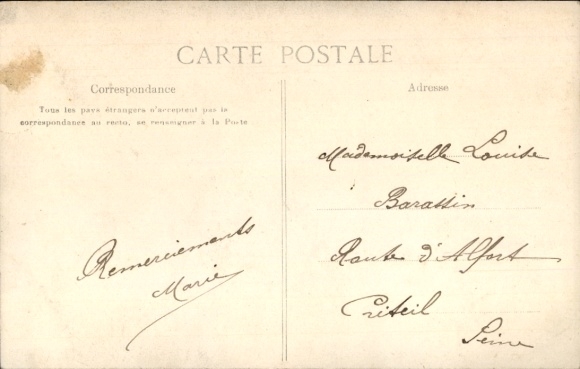 CARTE POSTALE
Correspondance
Tous les pays étrangers n'acceptent pas la
correspondance au recto, se renseigner à la Poste
Remerciements
Marie
Adresse
Mademoiselle Louise
Barassin
Route d'Alfort
Créteil
Seine